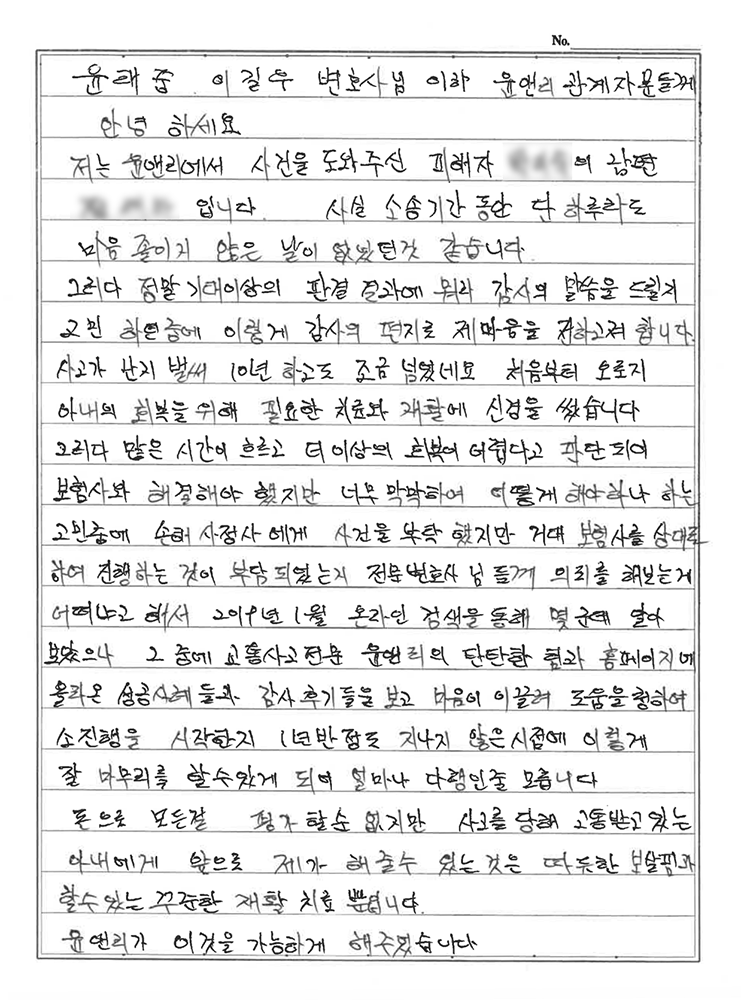 No.
윤태중 이길우 변호사님 이하 윤앤리 관계자분들께
안녕 하세요
저는 윤앤리에서 사건을 도와주신 피해자 의 남편
입니다. 사실 소송기간 동안 단 하루라도
마음 졸이지 않은 날이 없었던것 같습니다.
그러다 정말 기대이상의 판결 결과에 뭐라 감사의 말씀을 드릴지
고민 하던중에 이렇게 감사의 편지로 제마음을 전하고져 합니다.
사고가 난지 벌써 10년 하고도 조금 넘었네요 처음부터 오로지
아내의 회복을 위해 필요한 치료와 재활에 신경을 썼습니다
그러다 많은 시간이 흐르고 더이상의 회복이 어렵다고 판단되어
보험사와 해결해야 했지만 너무 막막하여 어떻게 해야하나 하는
고민중에 손해사정사에게 사건을 부탁 했지만 거대 보험사를 상대로
하여 진행하는 것이 부담 되었는지 전문변호사 님 들께 의뢰를 해보는게
어떠냐고 해서 2019년 1월 온라인 검색을 통해 몇군데 알아
보았으나 그 중에 교통사고전문 윤앤리의 탄탄한 팀과 홈페이지에
올라온 성공사례 들과 감사 후기들을 보고 마음이 이끌려 도움을 청하여
소진행을 시작한지 1년반 정도 지나지 않은 시점에 이렇게
잘 마무리를 할수있게 되어 얼마나 다행인줄 모릅니다
돈으로 모든걸 평가 할순 없지만 사고를 당해 고통받고 있는
아내에게 앞으로 제가 해 줄수 있는 것은 따듯한 보살핌과
할수있는 꾸준한 재활 치료 뿐입니다.
윤앤리가 이것을 가능하게 해주었습니다